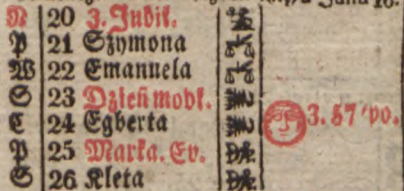 N 20 3. Judik.
P 21 Szymona
W 22 Emanuela
S 23 Dzień modl.
C 24 Egberta 3. 57 'po.
P 25 Marka. Ev.
S 26 Kleta